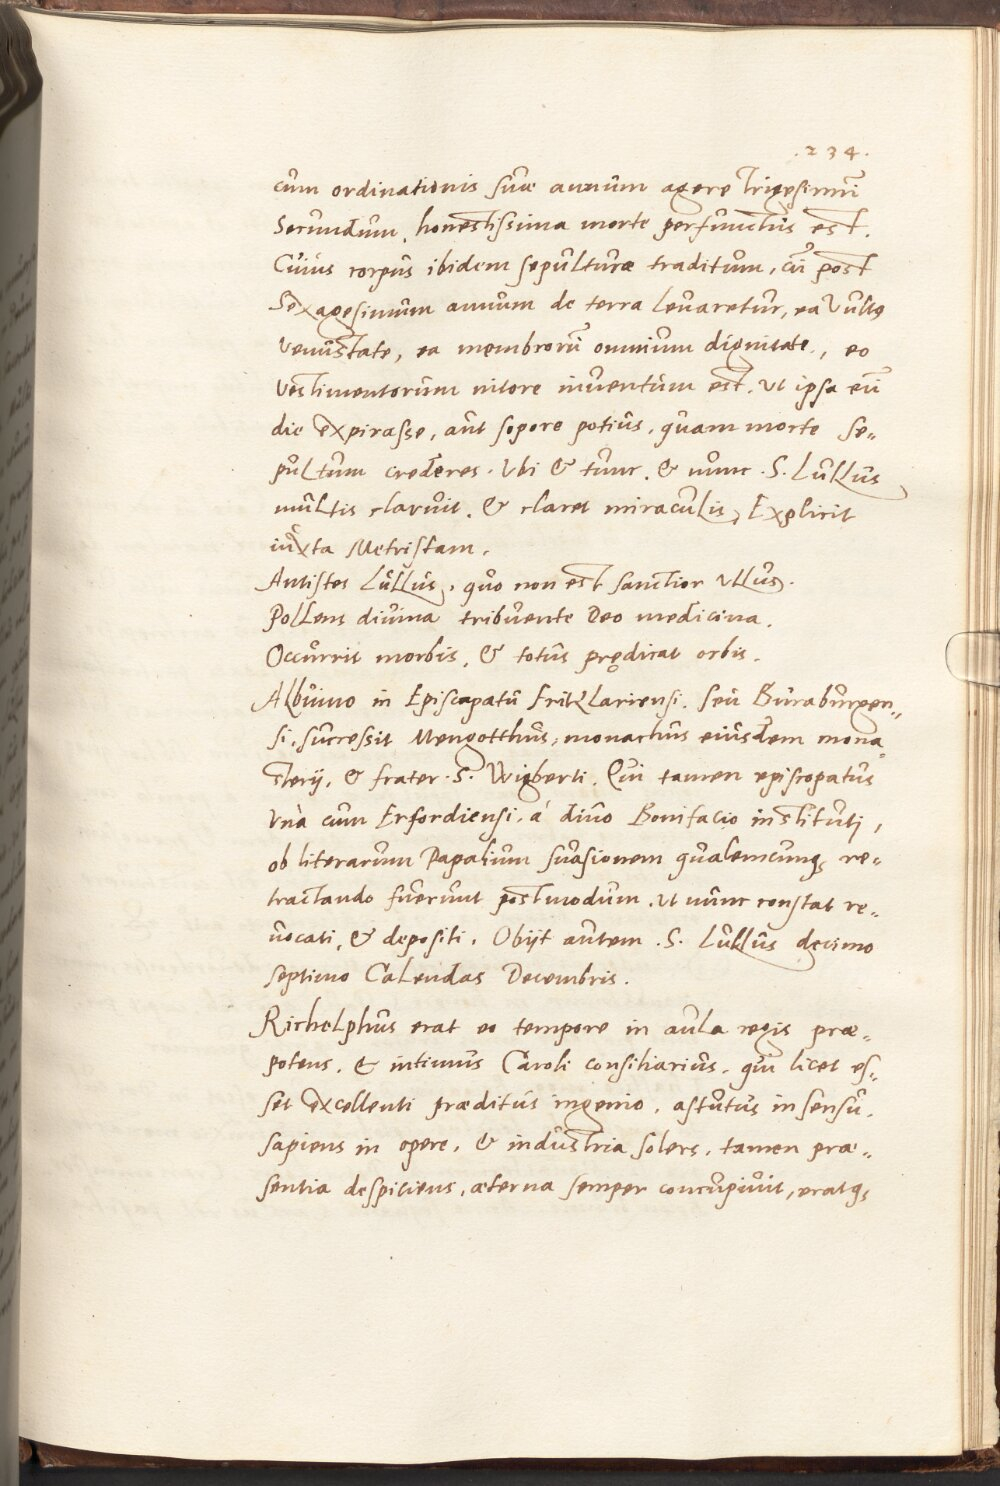 .234.
cum ordinationis suæ annum agere Trigesimũ
Secundum, honestissima morte perfunctus est.
Cuius corpus ibidem sepulturæ traditum, cũ post
Sexagesimum annum de terra levaretur, ea Vultꝰ
venustate, ea membrorũ omnium dignitate, eo
vestimentorum nitore inventum est, ut ipsa eũ
die expirasse, aut sopore potius, quam morte se„
pultum crederes. Ubi & tunc, & nunc .S. Lullus
multis claruit, & claret miraculis, Explicit
iuxta Metristam.
Antistes Lullus, quo non est sanctior ullus.
Pollens divina tribuente Deo medicina.
Occurrit morbis, & totus prędicat orbis.
Albuino in Episcopatu Fritzlariensi, seu Buraburgen„
si, successit Mengotthus, monachus eiusdem mona„
sterij, & frater .S. Wigberti. Qui tamen episcopatus
unà cum Erfordiensi, à divo Bonifacio instituti,
ob literarum Papalium suasionem qualemcunqꝫ re„
tractando fuerunt postmodum, ut nunc constat re„
vocati, & depositi. Obijt autem .S. Lullus decimo
septimo Calendas Decembris.
Richolphus erat eo tempore in aula regis præ„
potens, & intimus Caroli consiliarius, qui licet es„
set excellenti præditus ingenio, astutus in sensu,
sapiens in opere, & industria solers, tamen præ„
sentia despiciens, æterna semper concupivit, eratqꝫ